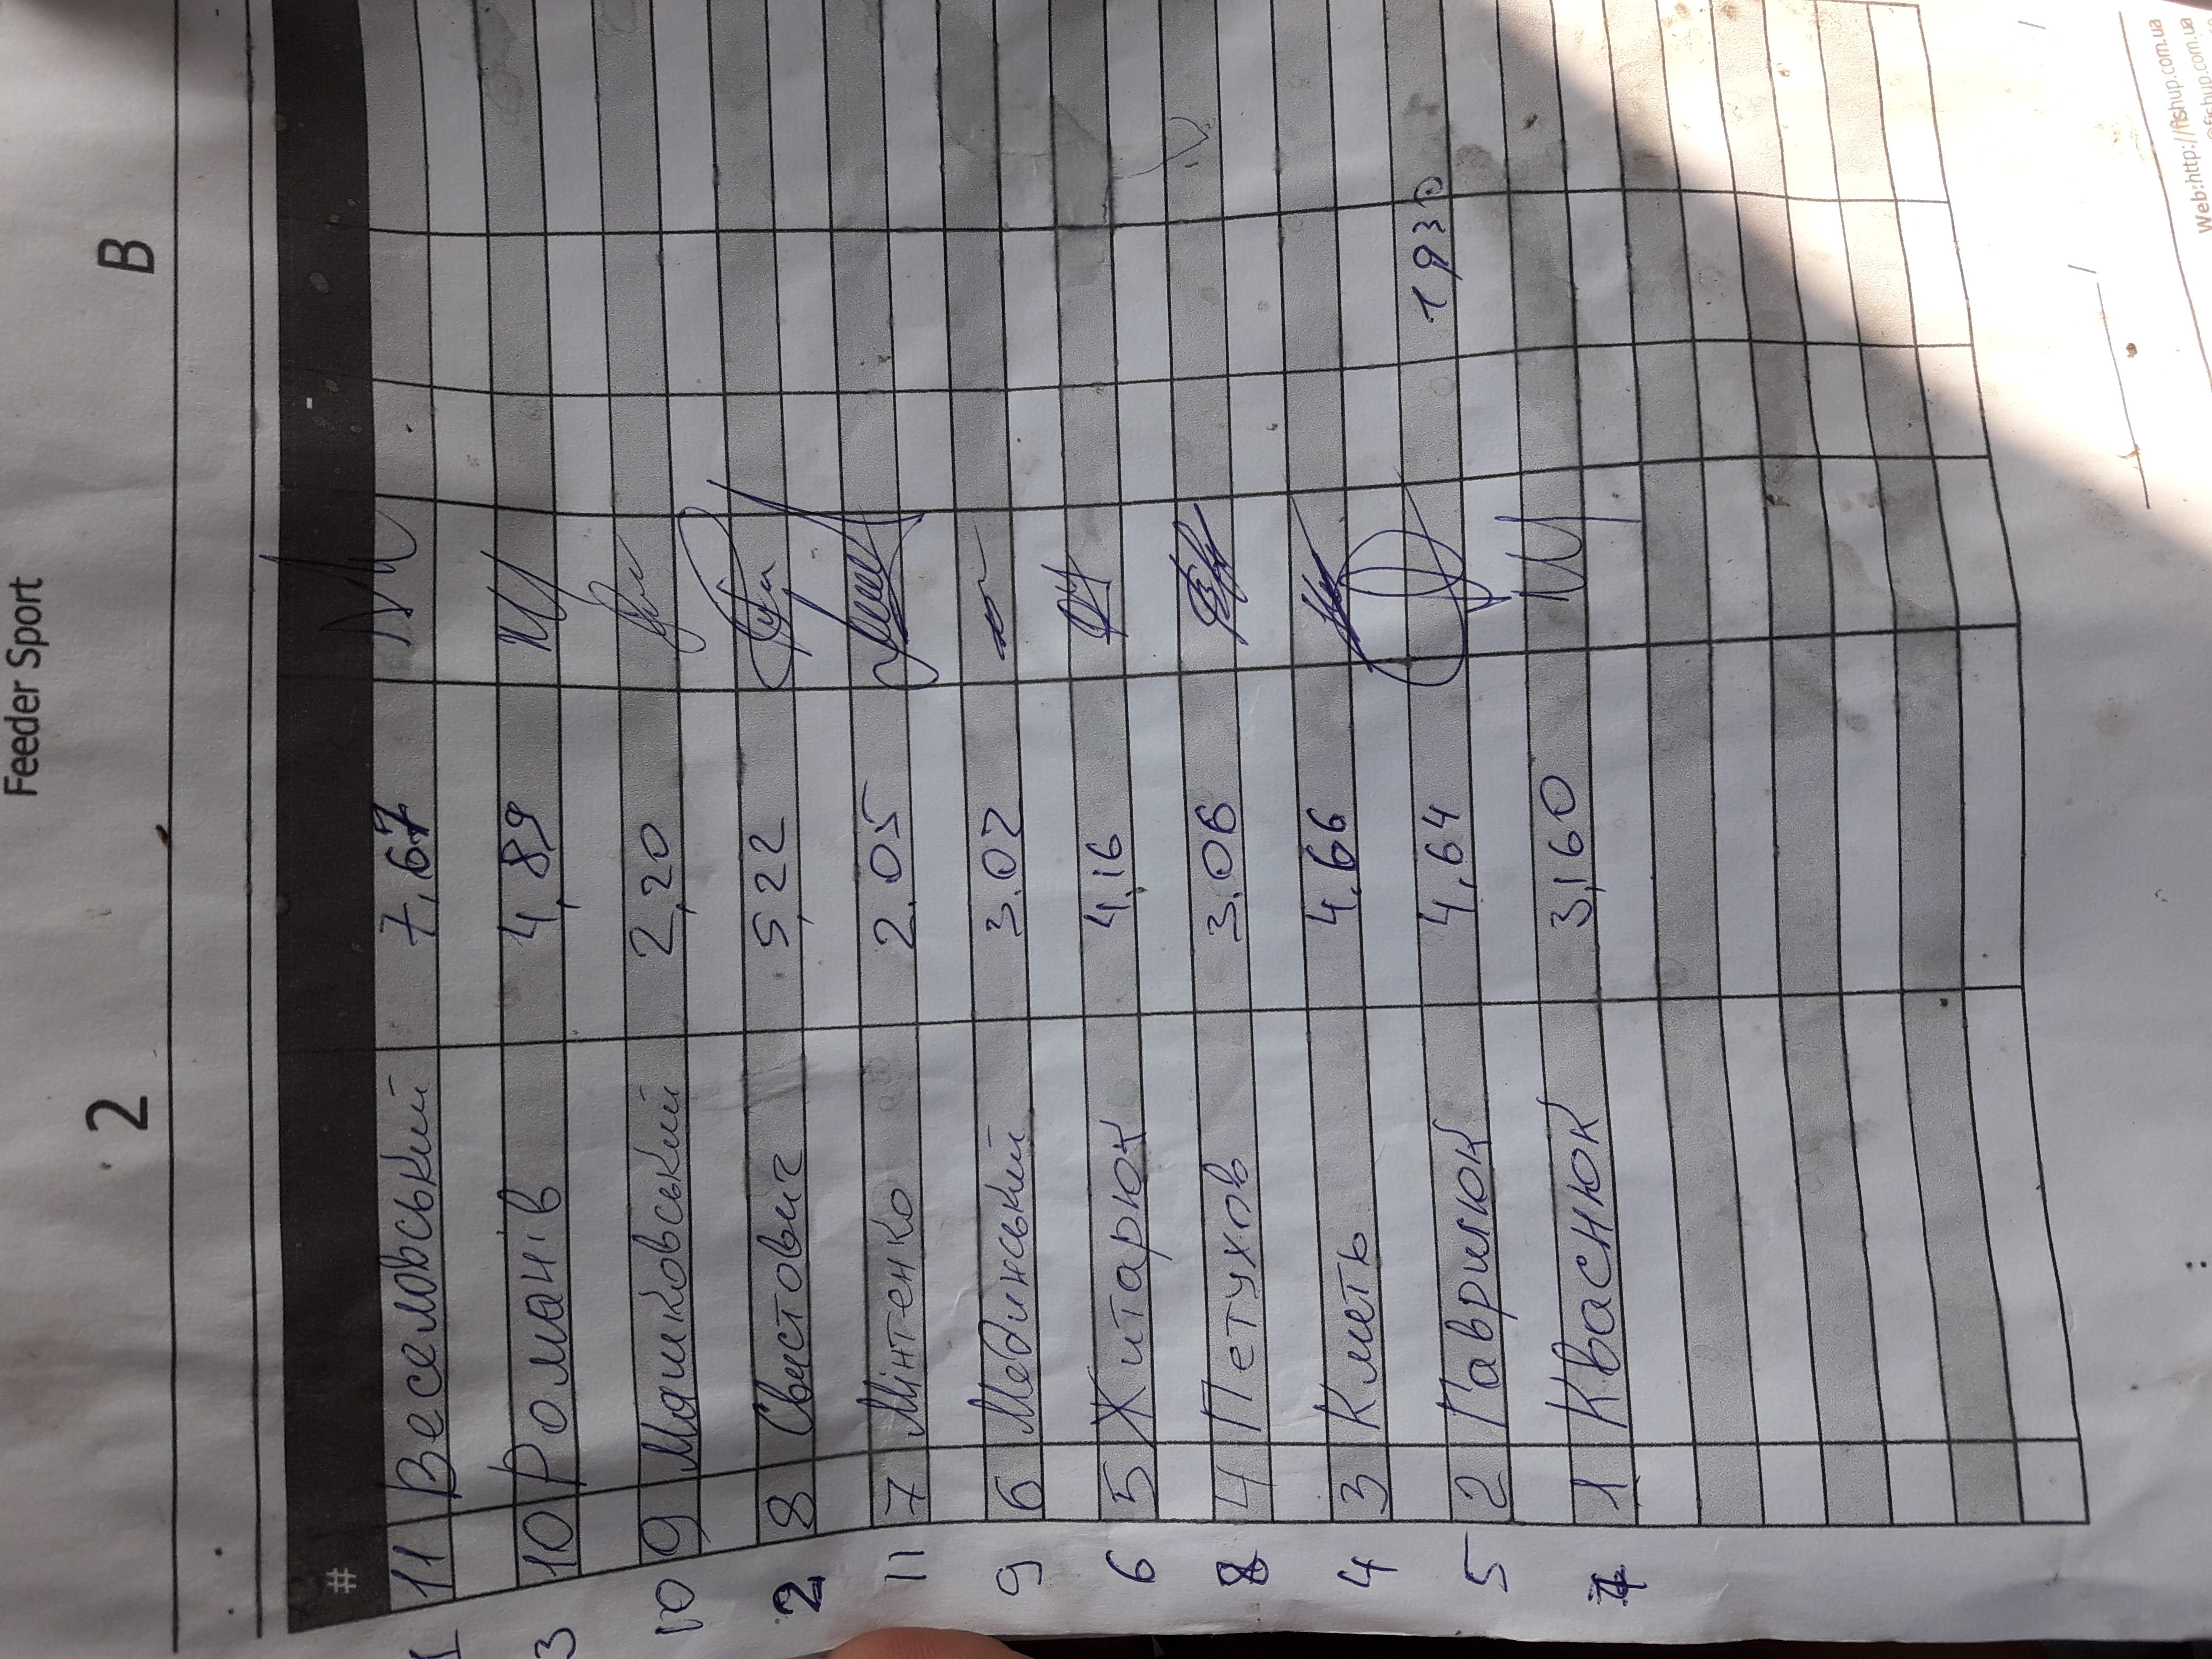 Feeder Sport
2 B
#
1 11 Веселовський 7,67
3 10 Романів 4,89
10 9 Машковський 2,20
2 8 Свистович 5,22
11 7 Мінтенко 2.05
9 6 Мединський 3.02
6 5 Житарюк 4,16
8 4 Петухов 3.06
4 3 Кметь 4,66
5 2 Гаврилюк 4,64 1930
7 1 Кваснюк 3,160
Web:http://fishup.com.ua